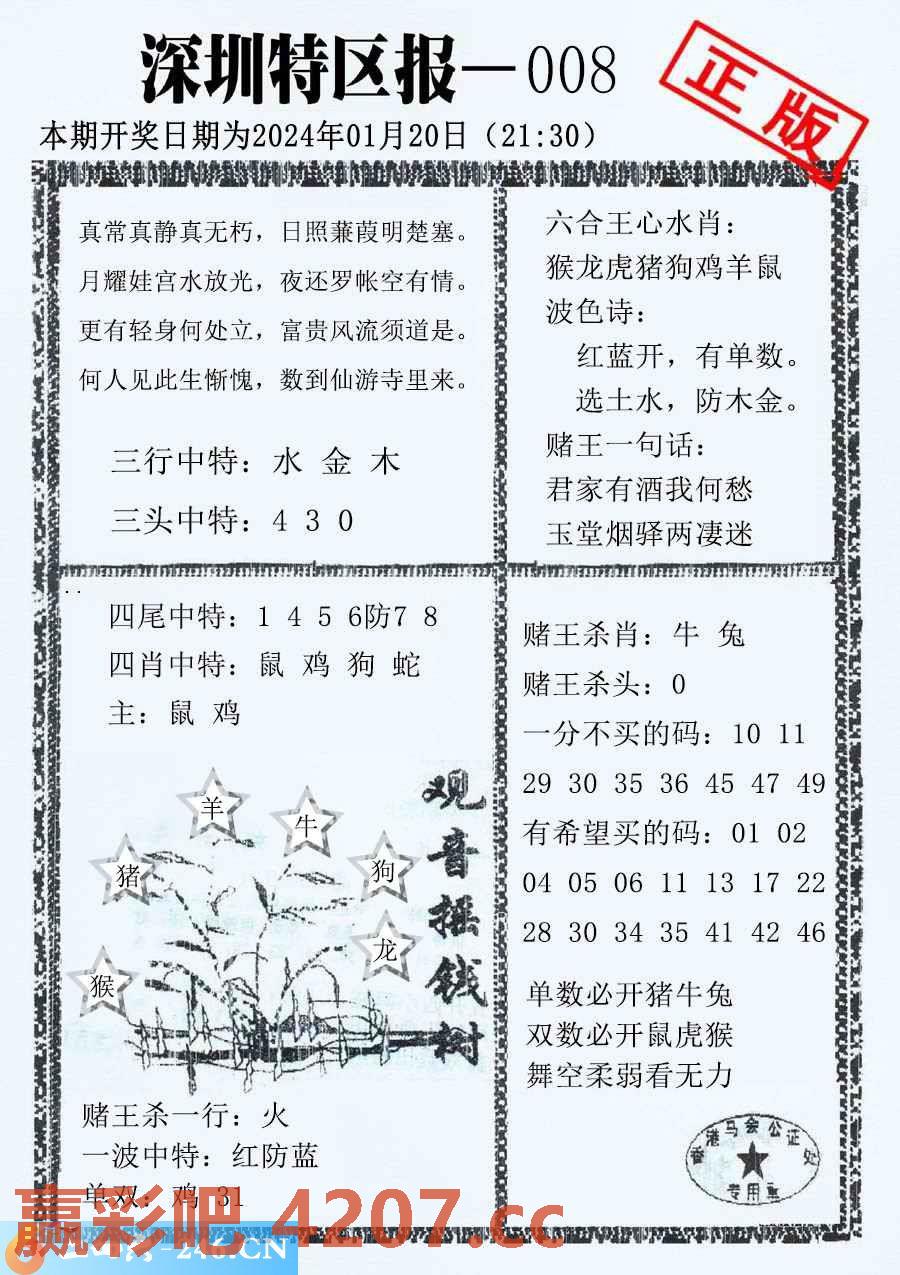 深圳特区报—008
正版
本期开奖日期为2024年01月20日（21:30）
真常真静真无朽，日照蒹葭明楚塞。
月耀娃宫水放光，夜还罗帐空有情。
更有轻身何处立，富贵风流须道是。
何人见此生惭愧，数到仙游寺里来。
三行中特：水 金 木
三头中特：4 3 0
六合王心水肖：
猴龙虎猪狗鸡羊鼠
波色诗：
红蓝开，有单数。
选土水，防木金。
赌王一句话：
君家有酒我何愁
玉堂烟驿两凄迷
四尾中特：1 4 5 6防7 8
四肖中特：鼠 鸡 狗 蛇
主：鼠 鸡
观音摇钱树
羊
牛
猪
狗
龙
猴
赌王杀一行：火
一波中特：红防蓝
单双：鸡 31
赌王杀肖：牛 兔
赌王杀头：0
一分不买的码：10 11
29 30 35 36 45 47 49
有希望买的码：01 02
04 05 06 11 13 17 22
28 30 34 35 41 42 46
单数必开猪牛兔
双数必开鼠虎猴
舞空柔弱看无力
香港马会公证处
专用章
赢彩吧 4207.cc
-246.CN